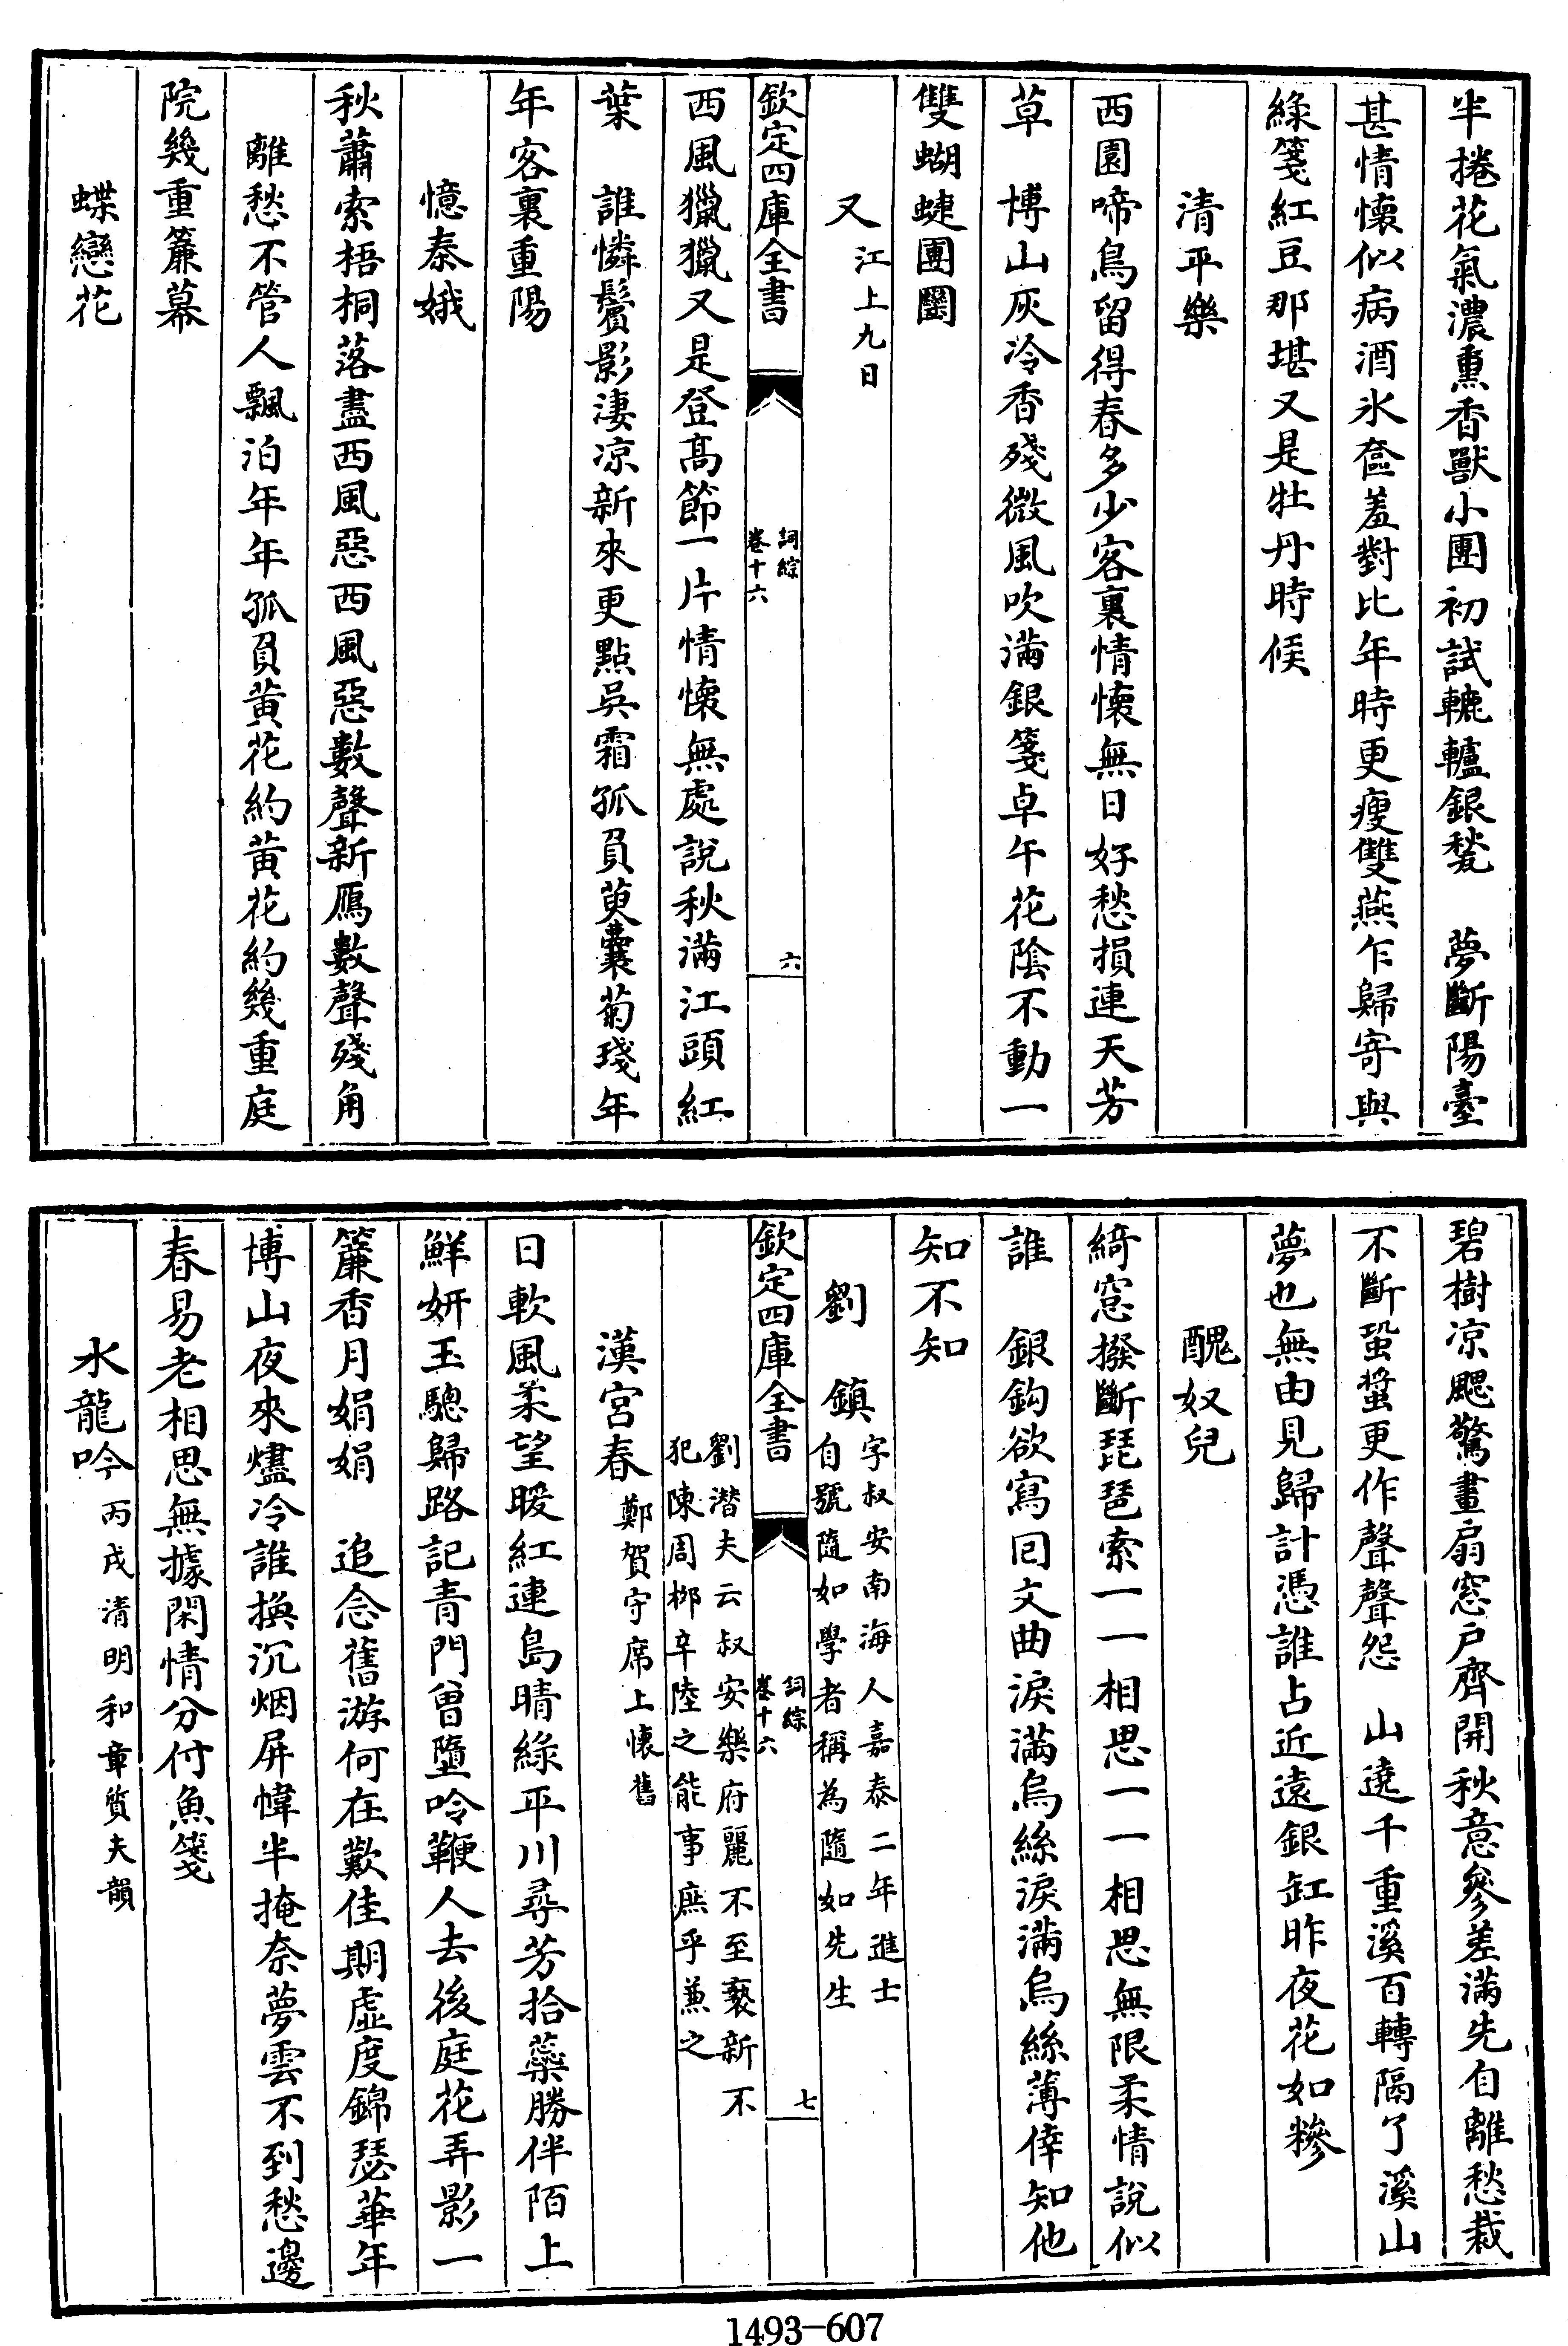 半捲花氣濃熏香獸小團初試轆轤銀甃　夢斷陽臺
甚情懷似病酒氷奩羞對比年時更瘦雙燕乍歸寄與
綠箋紅豆那堪又是牡丹時候
清平樂
西園啼鳥留得春多少客裏情懷無日好愁損連天芳
草　博山灰冷香殘微風吹滿銀箋卓午花陰不動一
雙蝴蝶團圞
又江上九日
欽定四庫全書
詞綜
卷十六
六
西風獵獵又是登高節一片情懷無處說秋滿江頭紅
葉　誰憐鬢影淒凉新來更點吳霜孤負萸囊菊琖年
年客裏重陽
憶秦娥
秋蕭索梧桐落盡西風惡西風惡數聲新鴈數聲殘角
離愁不管人飄泊年年孤負黄花約黄花約幾重庭
院幾重簾幕
蝶戀花
碧樹凉颸驚畫扇窓戶齊開秋意參差滿先自離愁裁
不斷蛩螿更作聲聲怨　山遶千重溪百轉隔了溪山
夢也無由見歸計憑誰占近遠銀缸昨夜花如糝
醜奴兒
綺窓撥斷琵琶索一一相思一一相思無限柔情說似
誰　銀鈎欲寫囘文曲淚滿烏絲淚滿烏絲薄倖知他
知不知
劉　鎮字叔安南海人嘉泰二年進士
自號隨如學者稱為隨如先生
欽定四庫全書
詞綜
卷十六
七
劉濳夫云叔安樂府麗不至褻新不
犯陳周栁辛陸之能事庶乎兼之
漢宮春鄭賀守席上懷舊
日軟風柔望暖紅連島晴綠平川尋芳拾蘂勝伴陌上
鮮妍玉驄歸路記青門曾墮吟鞭人去後庭花弄影一
簾香月娟娟　追念舊游何在歎佳期虛度錦瑟華年
博山夜來燼冷誰換沉烟屏幃半掩奈夢雲不到愁邊
春易老相思無據閑情分付魚箋
水龍吟丙戌清明和章質夫韻
1493-607